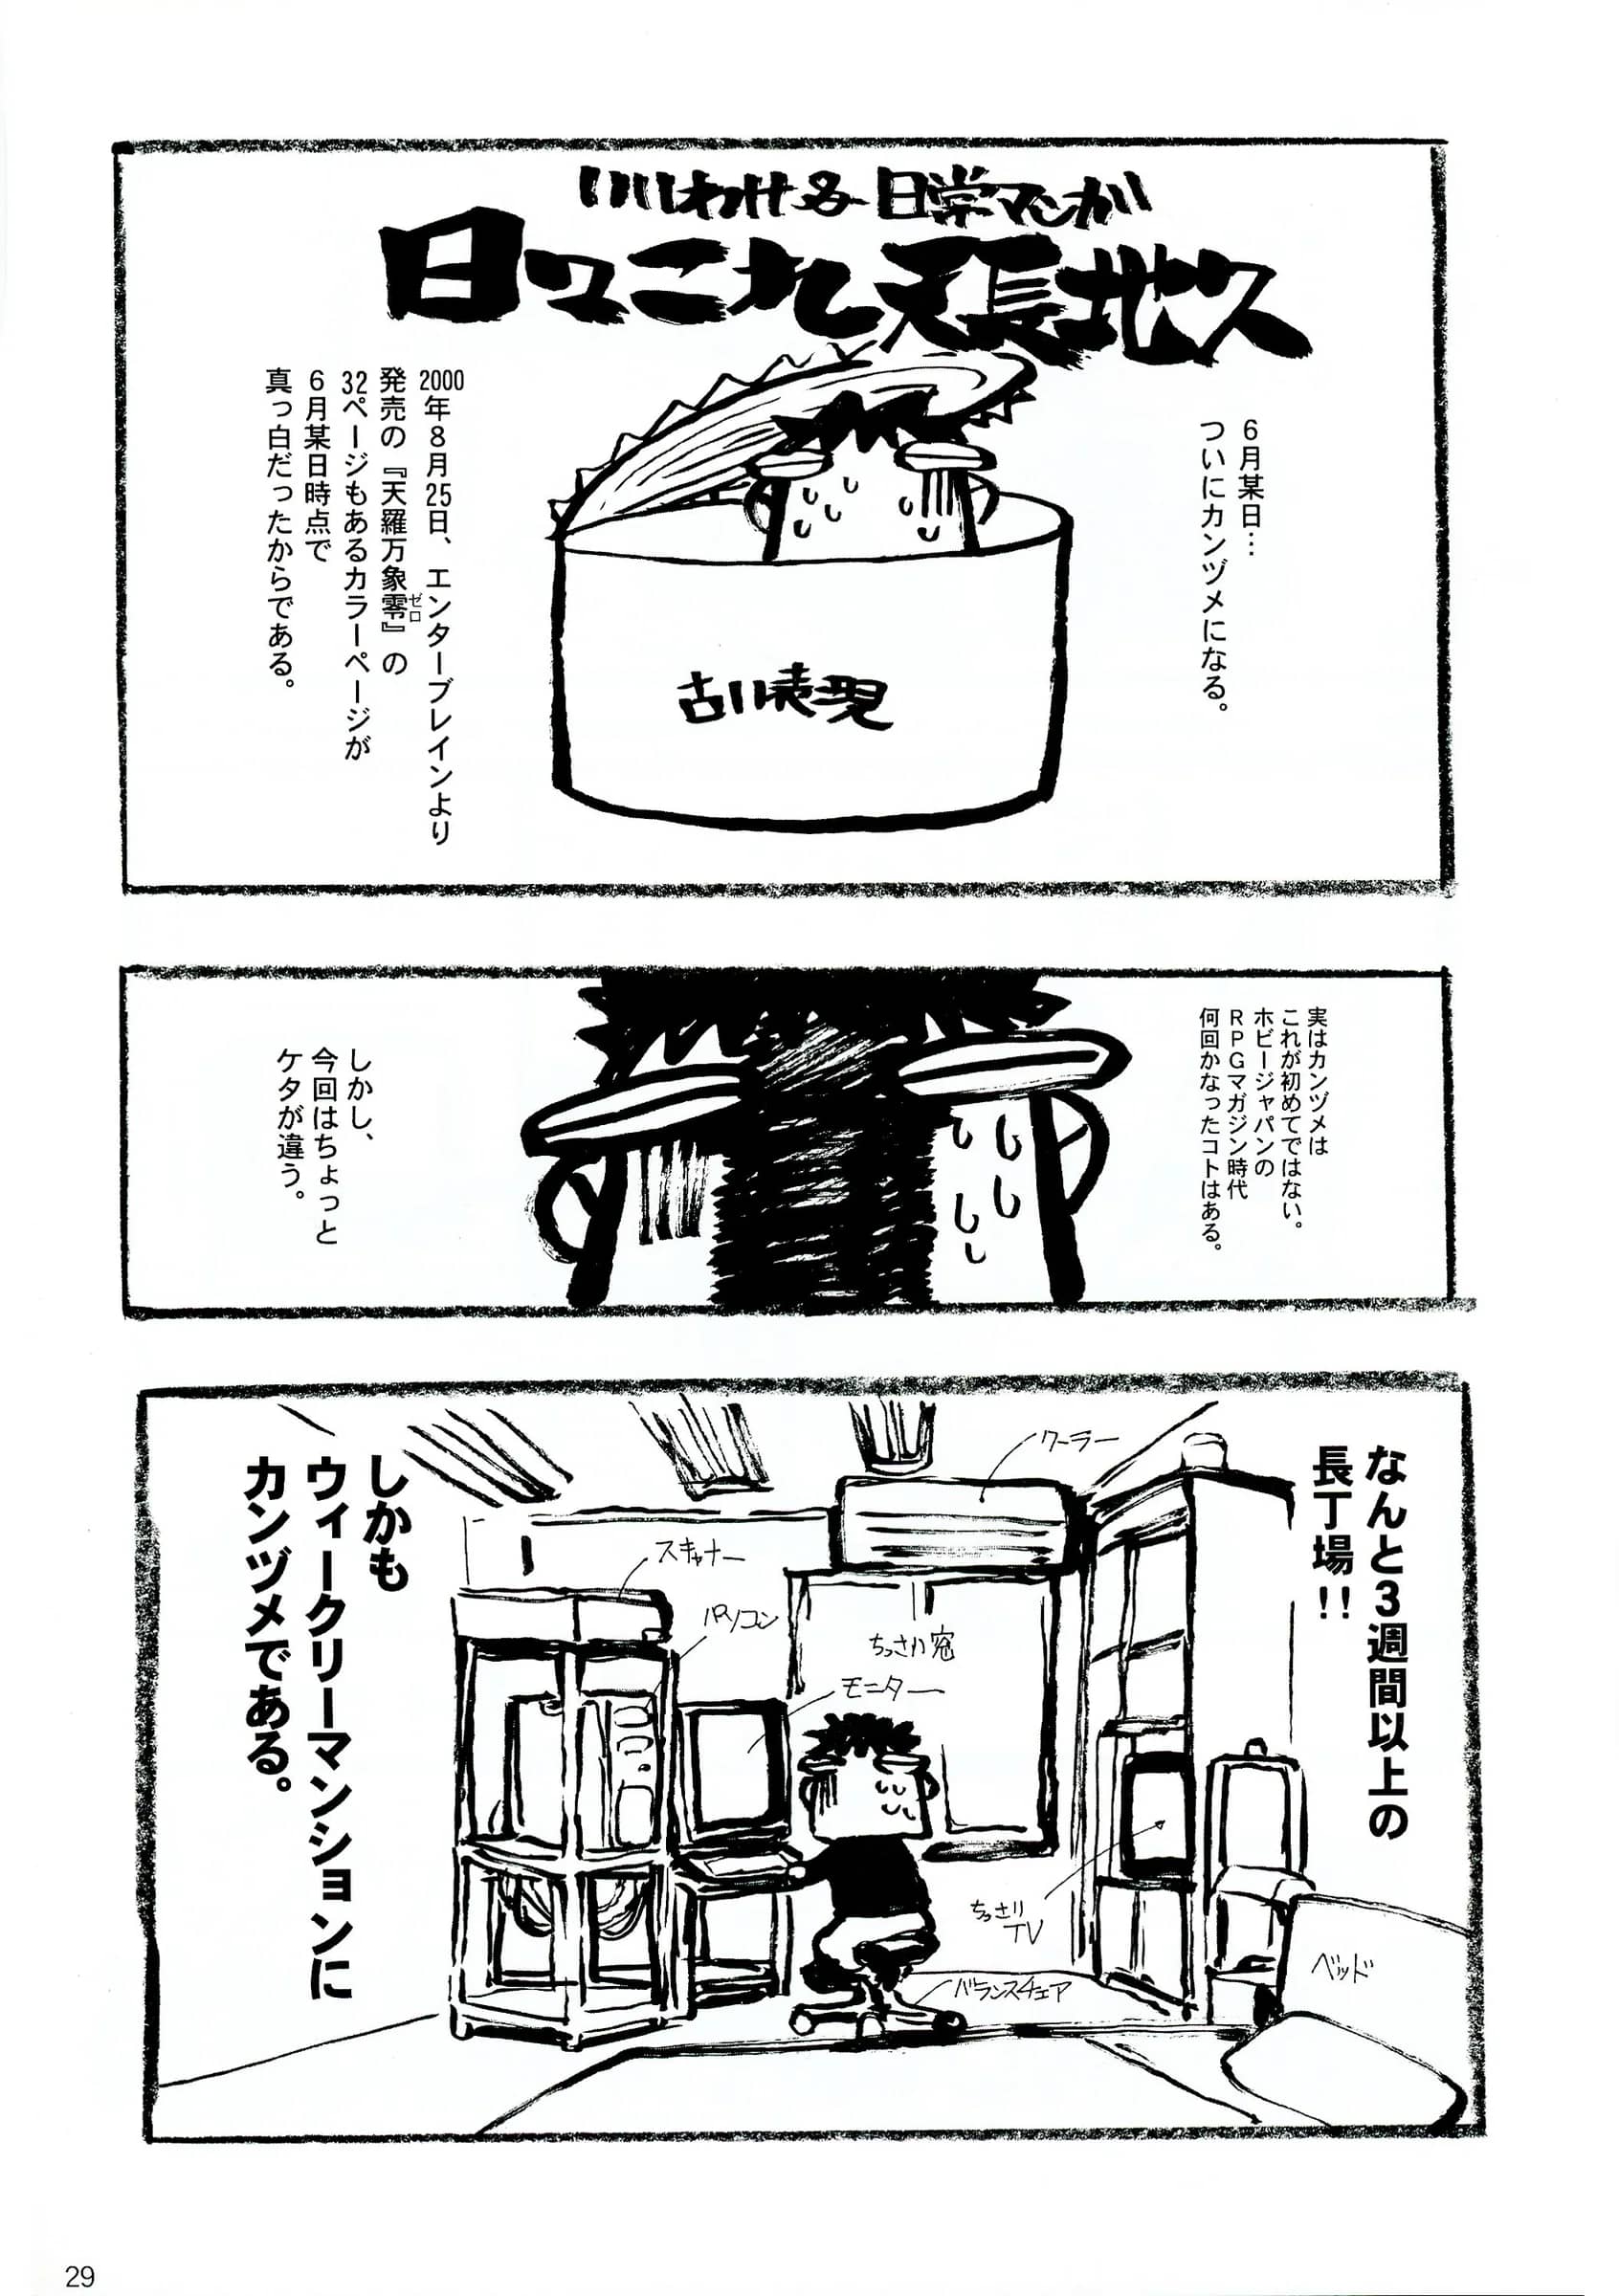 いいわけ&日常マンガ
日々これ天長地久
6月某日…
ついにカンヅメになる。
古川表現
2000年8月25日、エンターブレインより
発売の『天羅万象零』の
ゼロ
32ページもあるカラーページが
6月某日時点で
真っ白だったからである。
実はカンヅメは
これが初めてではない。
ホビージャパンの
RPGマガジン時代
何回かなったコトはある。
しかし、
今回はちょっと
ケタが違う。
なんと3週間以上の
長丁場!!
クーラー
スキャナー
パソコン
ちっさい窓
モニター
ちっさい
TV
バランスチェア
ベッド
しかも
ウィークリーマンションに
カンヅメである。
29